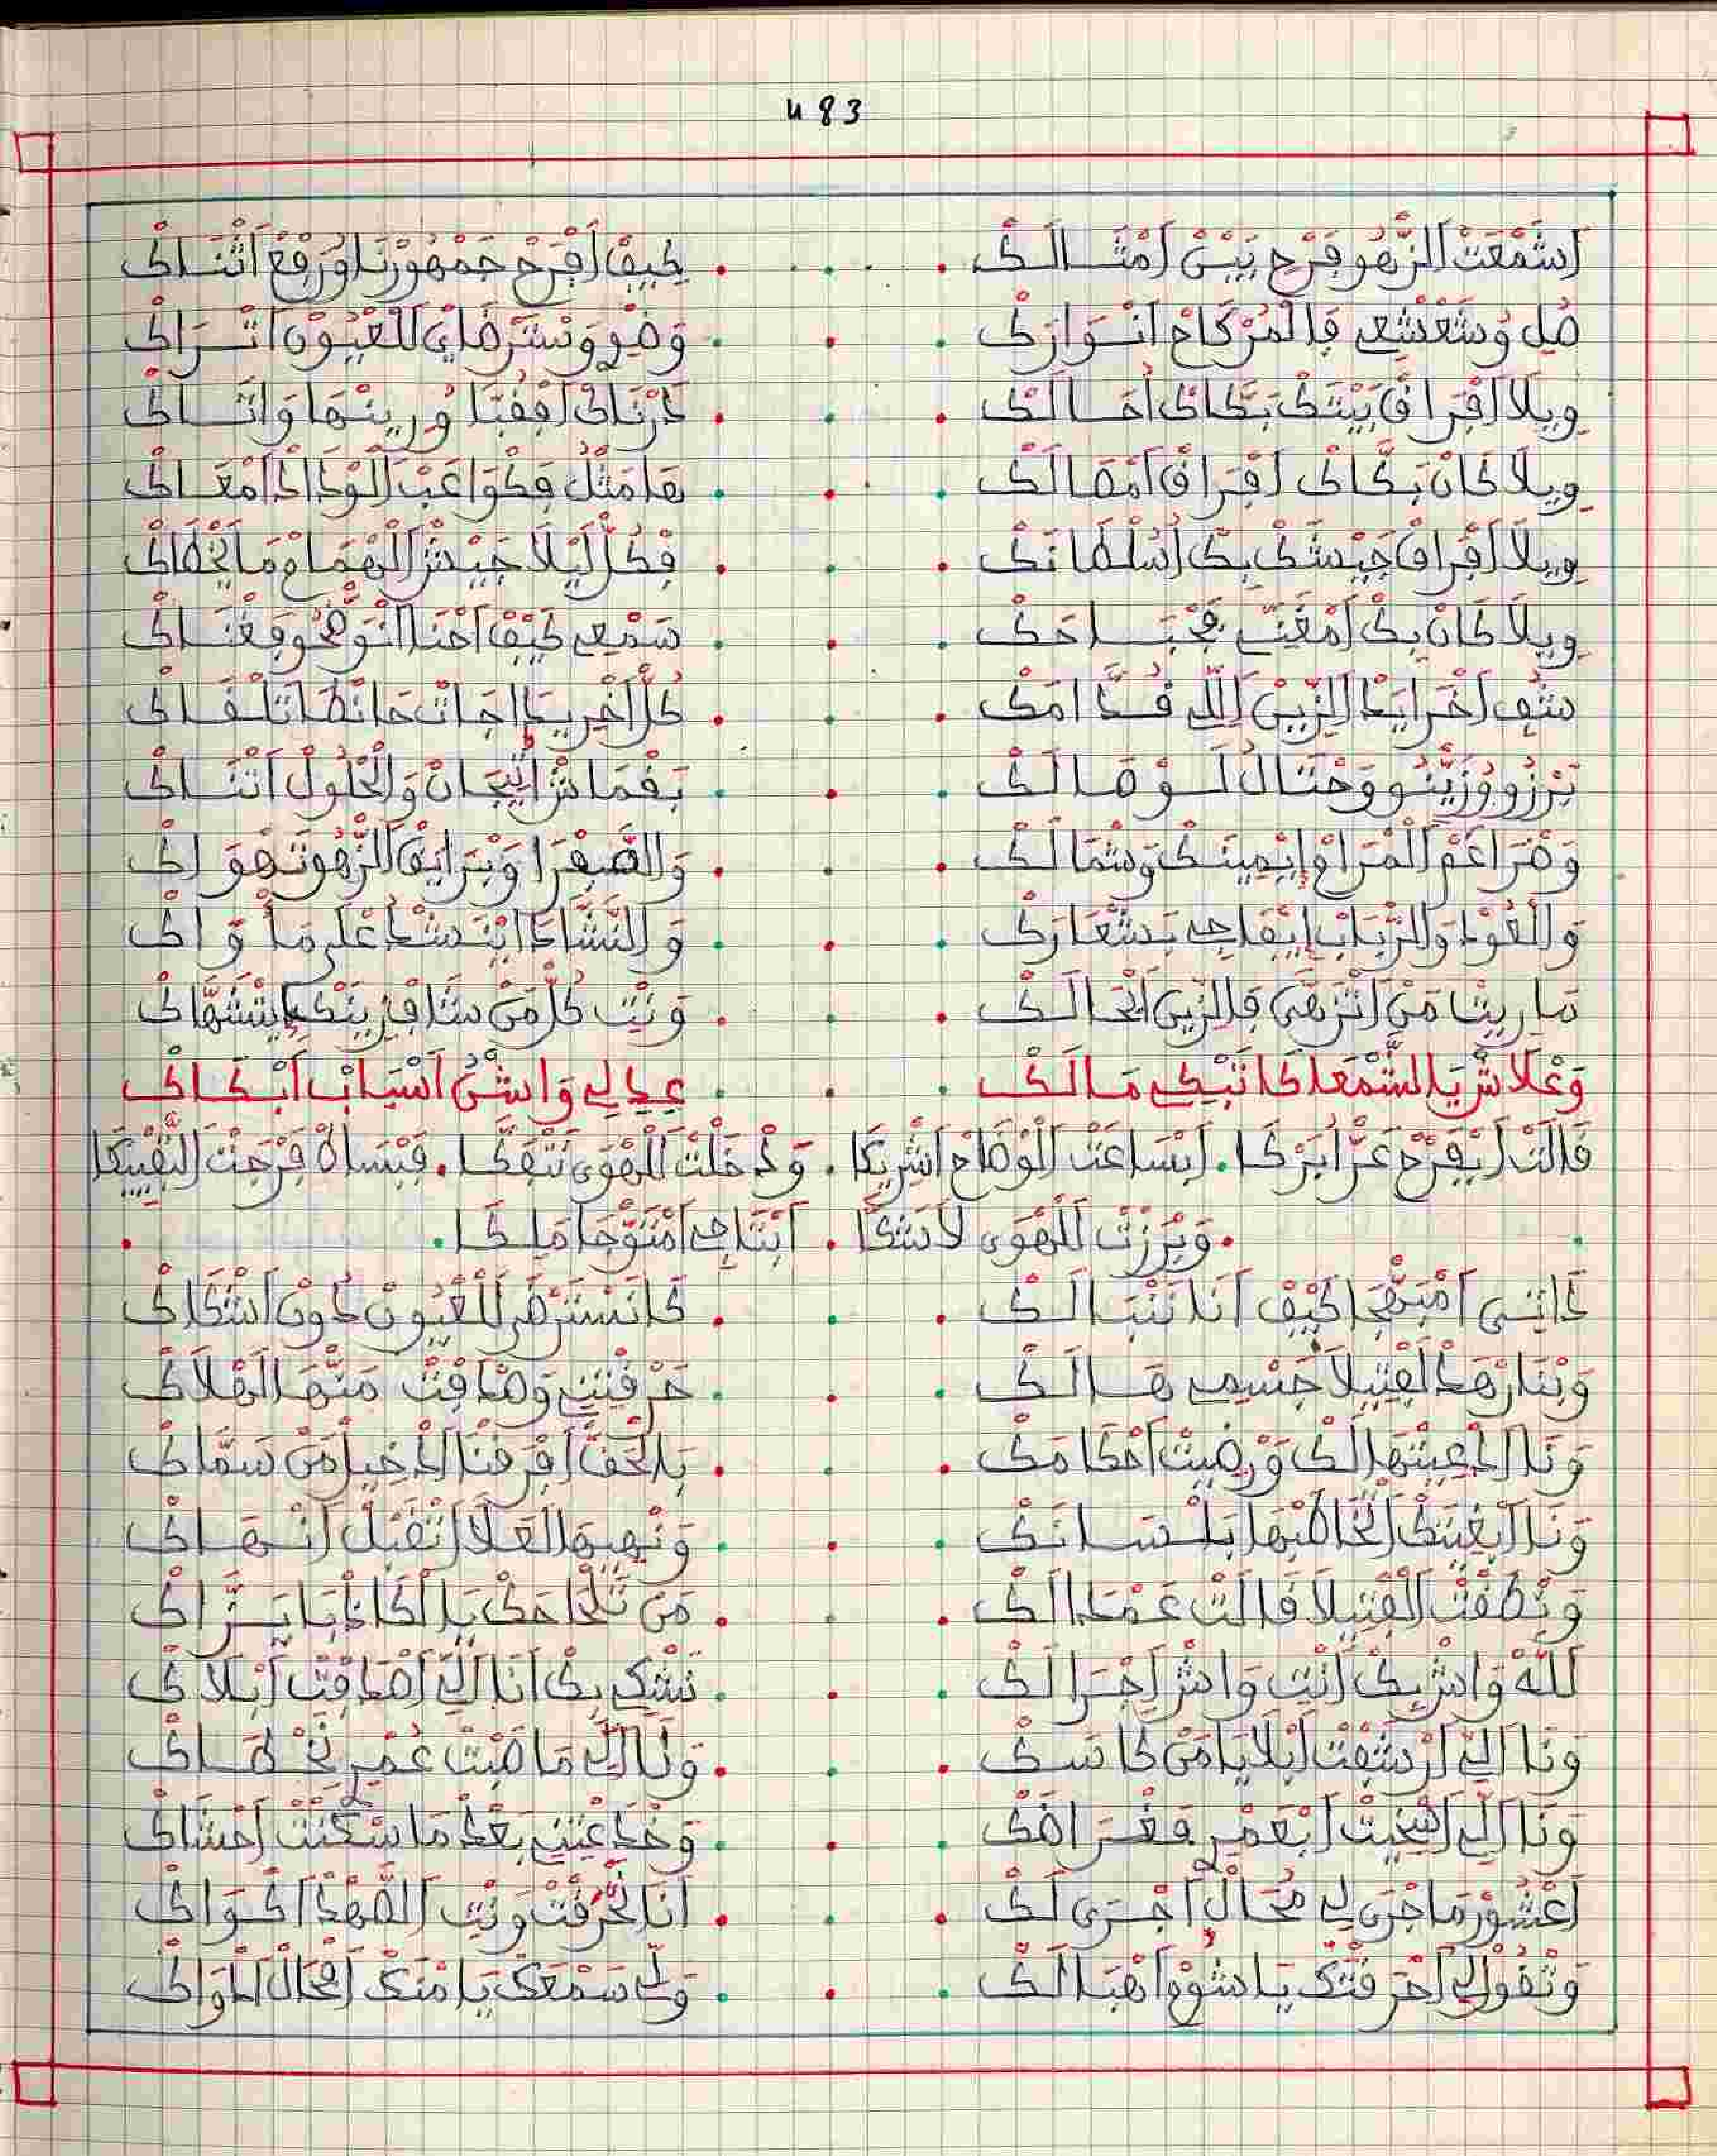 483
اَشَمْعَتْ الزّهُو فَرْحِ بَيْنْ اَمْثَالَكْ . كِيفْ اَفْرَحْ جَمْهُورْنَا وُرْفَعْ اَثْنَاكْ
صُلِ وُشَعْشْعِي فَالْمُرْكَاحْ اَنْوَارَكْ . وَضْوِ وَنْسَرْضَايْ لَلْعْيُونْ اَتْرَاكْ
وِيلَا اَفْرَاقْ بَيْتَكْ بَكَّاكْ اَحَالَكْ . دَرْنَاكْ اَفْقُبَّا وُزِينْهَا وَاتَاكْ
وِيلَا كَانْ بَكَّاكْ اَفْرَاقْ اَمْصَالَكْ . هَا مَثْلُ فَكْوَاغَبْ الْوَدَادْ اَمْعَاكْ
وِيلَا اَفْرَاقْ جَيْشَكْ بِكْ اَسُلْطَانَكْ . فْكُلّْ لَيْلَا جَيْشْ الْهْمَامْ مَا يَخْطَاكْ
وِيلَا كَانْ بِكْ اَمْغَيَّبْ مَجْبَاحَكْ . سَمْعِي كِيفْ اَحْنَا اَنْوَجّحُو فَغْنَاكْ
شُفِ اَخْرَايَدْ الزِّينْ اَللِّ قُدَّامَكْ . كُلّْ اَخْرِيدَا جَاتْ حَانْطَا تَلْقَاكْ
بَرْزُو وُزَيّْنُو وَحْتَالُ لَوْصَالَكْ . بَقْمَاشْ اَتِّيجَانْ وَالْحْلُولْ اَتْنَاكْ
وَخْرَاعَمْ الْمْرَامْ اِيْمِينَكْ وَشْمَالَكْ . وَالصَّفْرَا وَبْرَايَقْ الزّْهُو تَهْوَاكْ
وَالْعُودْ وَالرّْبَابْ اِيْفَاجِي بَشْعَارَكْ . وَالنَّشَّادْ اِيْنَشْدْ عْلَى مَا وَاكْ
مَا رِيتْ مَنْ اَتْزَهَّى فَالزِّينْ اِلْحَالَكْ . وَنْتِ كُلّْ مَنْ شَافْ زِينَكْ اِيتْشَهَّاكْ
وَعْلَاشْ يَا الشَّمْعَا كَا تَبْكِي مَالَكْ . عِيدِ لِي وَاشْنُ اَسْبَابْ اَبْكَاكْ
قَالَتْ اَيْفَرَّحْ عَزّْ اَبَرْكَا . اَبْسَاعَتْ الْوْصَاحْ اَشْرِيكَا . وَدْخَلْتْ الْهْوَى نَتْفَكَّا . فَبْسَاطْ فَرْجْتْ النّْقِيكَا
. وَبْرَزْتْ لَلْهْوَى لَا شَكَّا . اَبْتَاجِي اَمْتَوّْجَا مَلِكَا .
دَاتِي اَمْبَهّْجَا كِيفْ اَنَا نَتْبَالَكْ . كَا نَسْتَرْضَى لَلْعْيُونْ دُونْ اَشْكَاكْ
وَبْنَارْ هَدْ الْفْتِيلَا جَسْمِي هَالَكْ . حَرْقَتْنِي وَهْدَاقَتْ مَنّْهَا الْهْلَاكْ
وَنَا اَدْعِيتْهَا اَلَكْ وَرْضِيتْ اَحْكَامَكْ . بَالْحَقّْ اَفْرَقْنَا اَدْخِيلْ مَنْ سَمَّاكْ
وَنَا اَبْغِيتَكْ اَتّخَاطَبْهَا بَلْسَانَكْ . وَنْهِيهَا لَعَلَّا تَقْبَلْ اَنْهَاكْ
وَنْطَقْتْ الْفْتِيلَا قَالَتْ عَمْدَا لَكْ . مَنْ نَلْحَامَكْ يَا الْكَادْبَا بَرَّاكْ
اَللَّهْ وَاشْ بِكْ اَنْتِ وَاشْ اَجْرَا لَكْ . نَشْكِي بِكْ اَنَا اَلِّي اَهْدَاقَتْ اَبْلَاكْ
وَنَا اَلِّي اَرْشَفْتْ اَبْلَايَا مَنْ كَاسَكْ . وَنَا اَلِّي مَاضِيتْ عُمْرِ نَخْطَاكْ
وَنَا اَلِّي اَسْخِيتْ اَبْعَمْرِ فَغْرَاضَكْ . وَخْدَعْتِينِي بَعْدْ مَا سْكَنْتْ اَحْشَاكْ
اَعْشُورْ مَا جْرَى لِي مُحَالْ اَجْرَى لَكْ . اَنَا نَحْرَقْتْ وَنْتِ الصَّهْدْ اَكْوَاكْ
وَتْقُولِي اَحْرَقْتَكْ يَا شُومْ اَهْبَالَكْ . وَلِّي سَمْعَكْ يَا مَنْكْ اِمْحَالْ اَدْوَاكْ